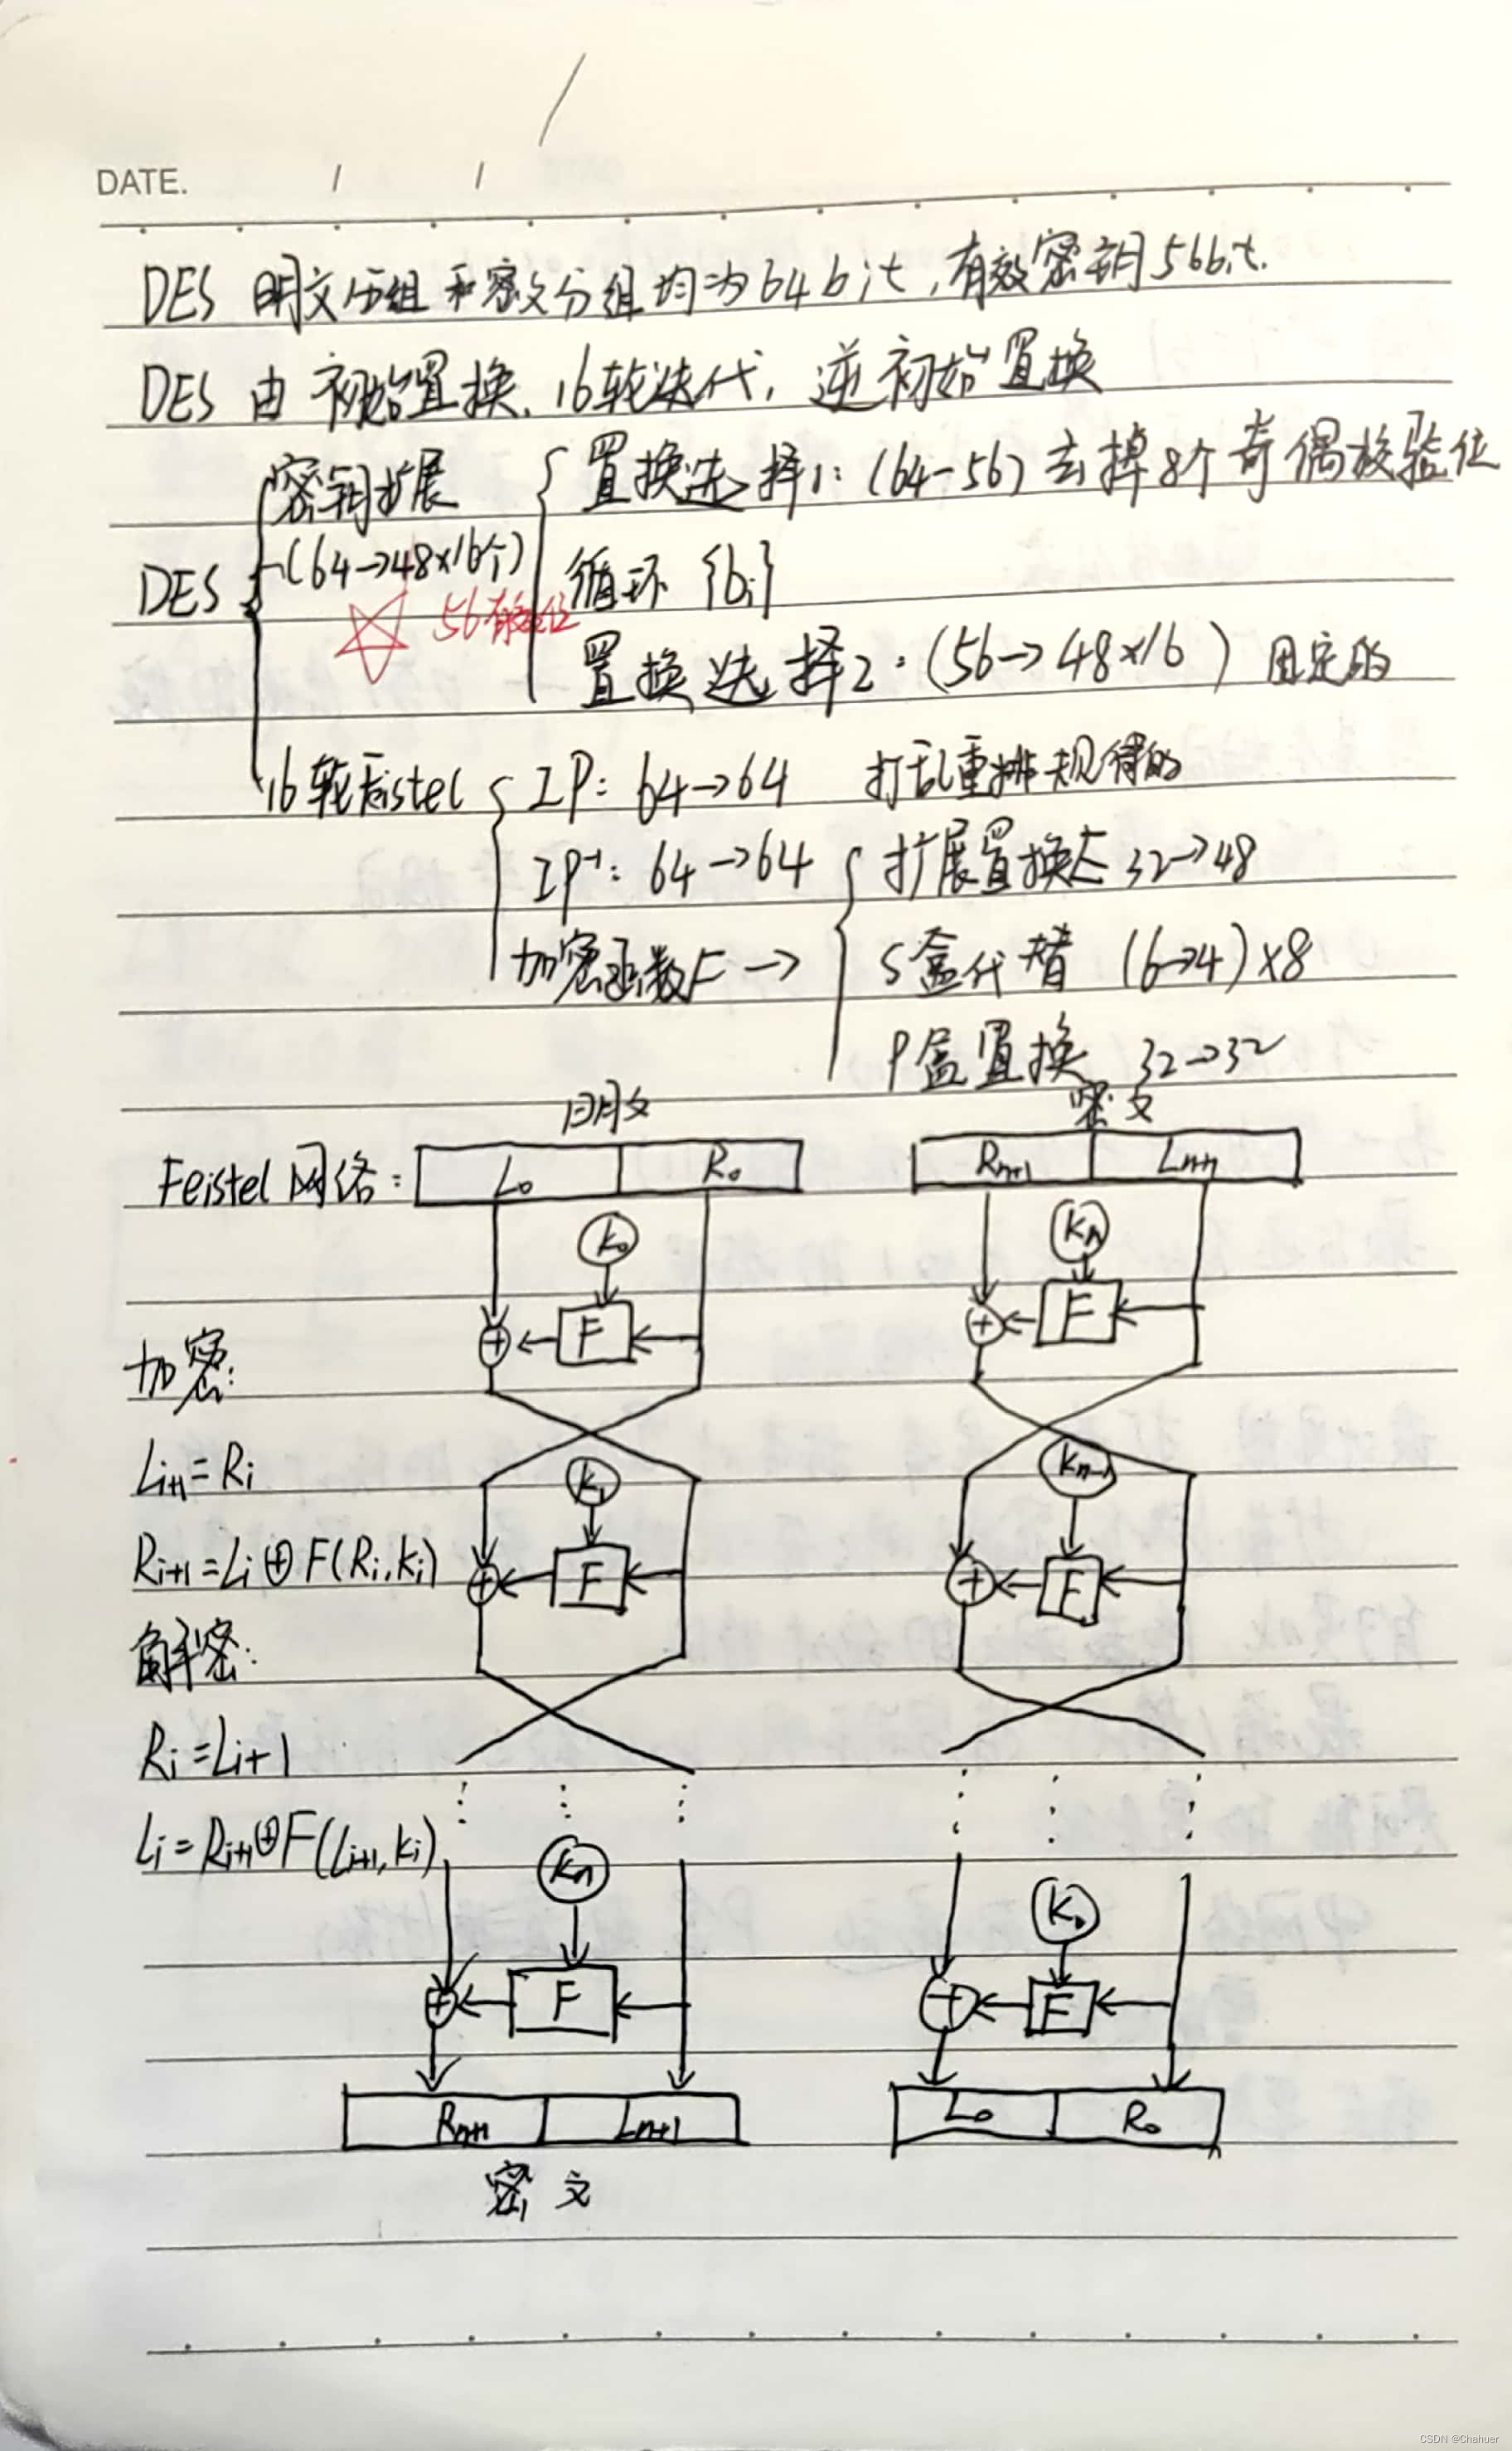 DATE. / /
DES 明文分组和密文分组均为64bit,有效密钥56bit.
DES 由 初始置换、16轮迭代、逆初始置换
密钥扩展
置换选择1:(64-56)去掉8个奇偶校验位
DES
(64→48×16个)
循环 {bi}
56有效位
置换选择2:(56→48×16) 固定的
16轮Feistel
IP: 64→64 打乱重排规律的
IP⁻¹: 64→64
扩展置换E 32→48
加密函数F →
S盒代替 (6→4)×8
P盒置换 32→32
明文
密文
Feistel网络:
L₀ R₀
Rn+1 Ln+1
K₀
Kn
F
F
加密:
Li+1=Ri
K₁
Kn-1
Ri+1=Li⊕F(Ri,Ki)
F
F
解密:
Ri=Li+1
Li=Ri+1⊕F(Li+1,Ki)
Kn
K₀
F
F
Rn+1 Ln+1
L₀ R₀
密文
CSDN @Chahuer